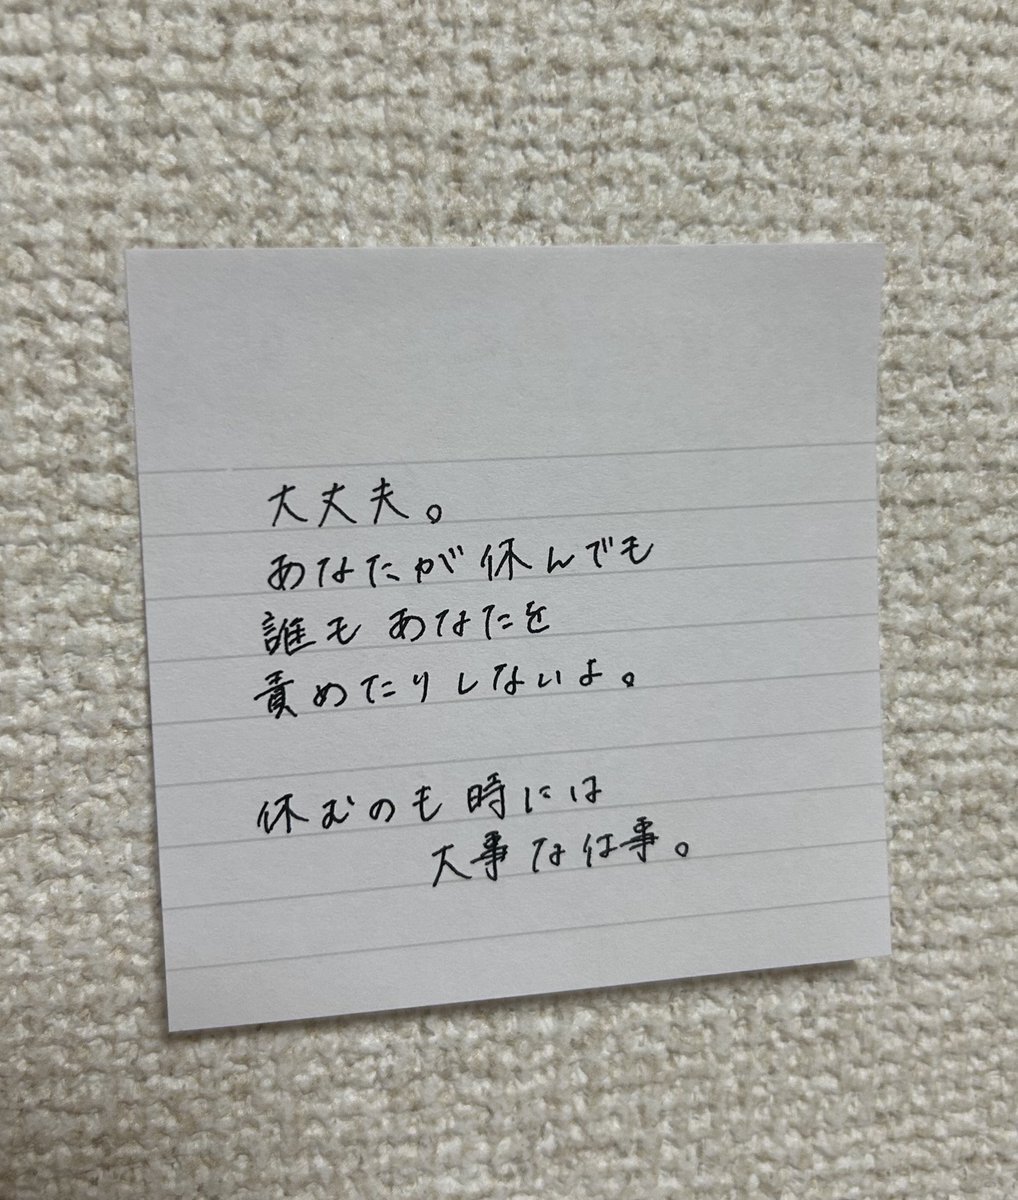 大丈夫。
あなたが休んでも
誰もあなたを
責めたりしないよ。
休むのも時には
大事な仕事。